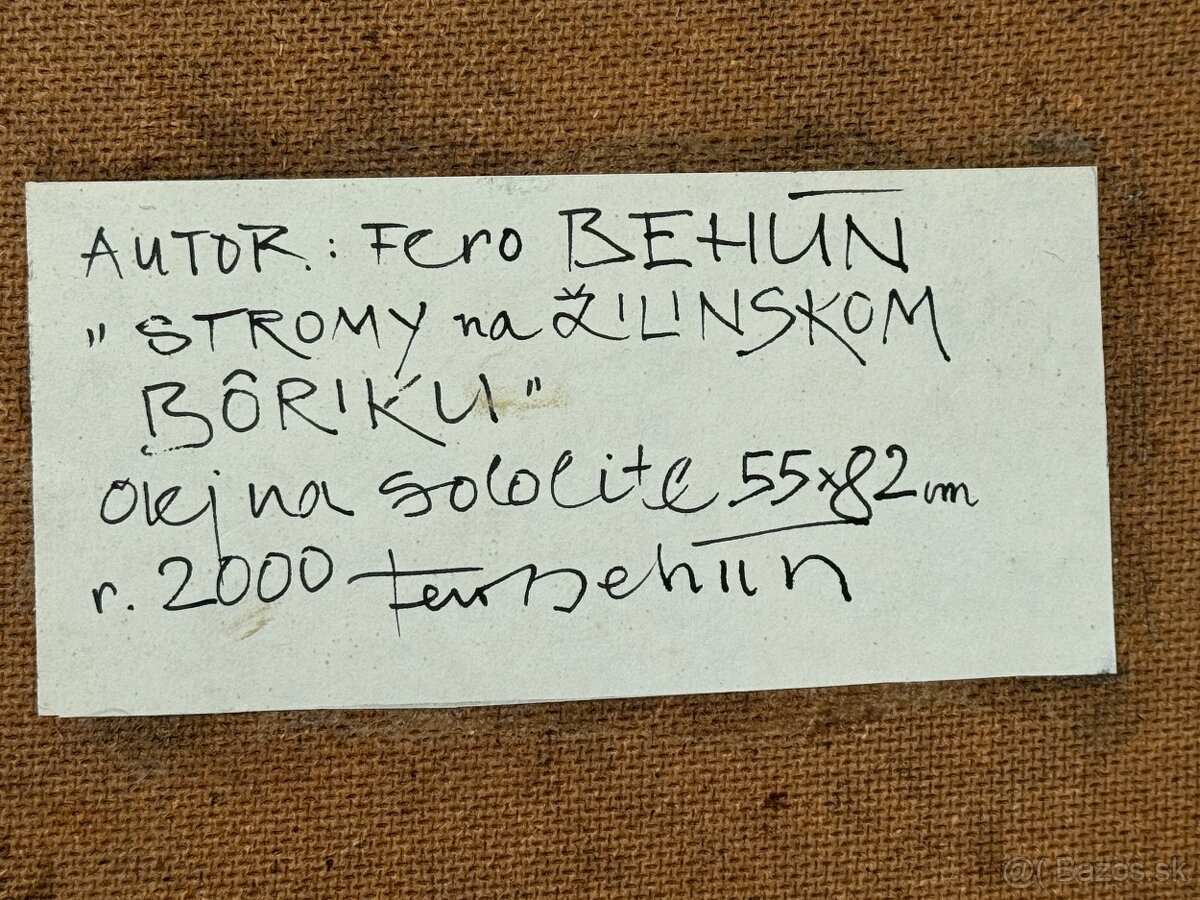 AUTOR.: Fero BEHÚN
"STROMY na ŽILINSKOM
BÔRIKU"
olej na sololite 55x82 cm
r. 2000 Fero Behún
@( Bazos.sk